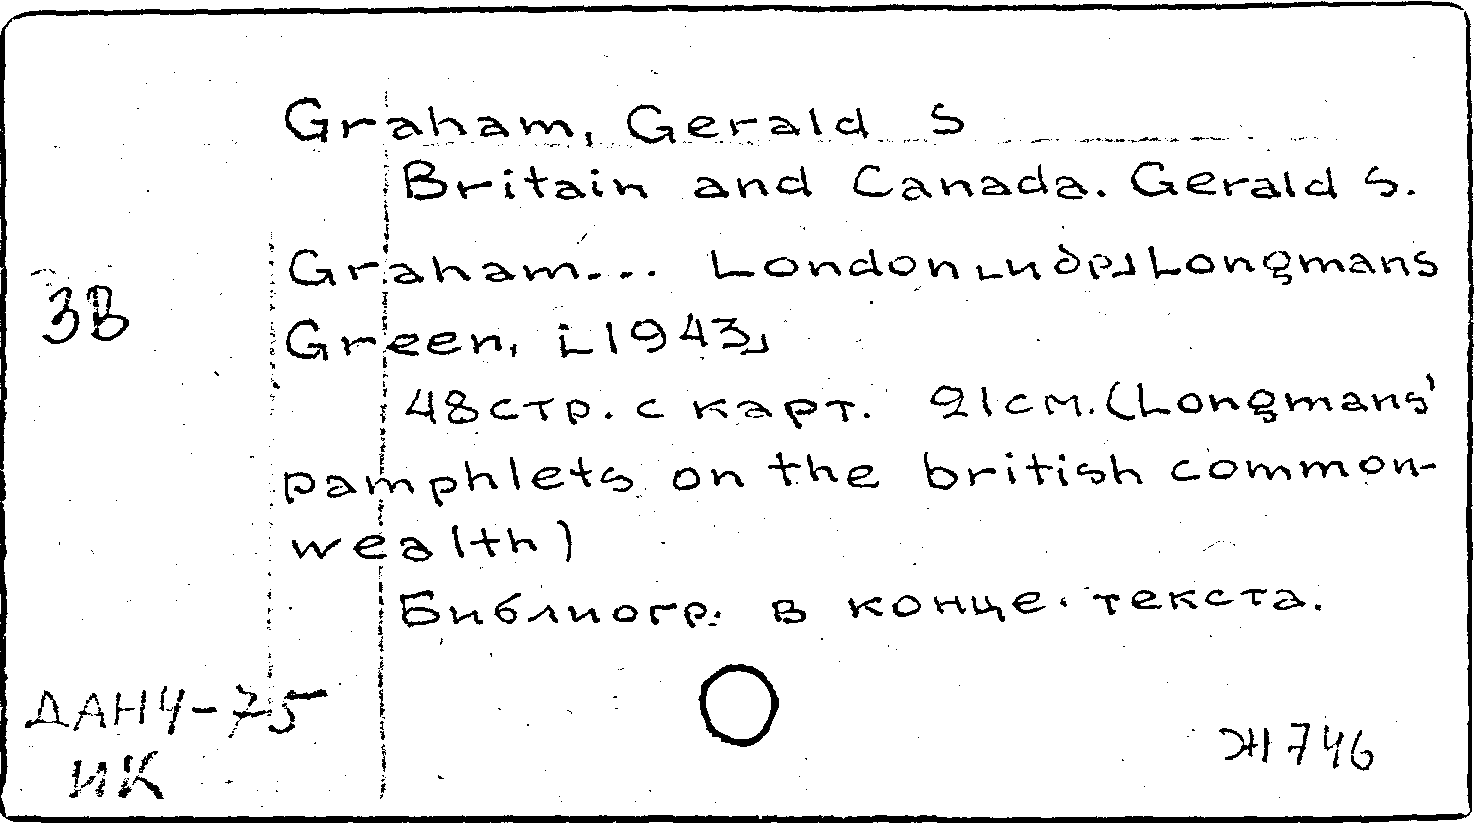 Graham, Gerald S
Britain and Canada. Gerald S.
Graham... London [и др.] Longmans
3В
Green, [1943]
48 стр. с карт. 21 см. (Longmans'
pamphlets on the british common-
wealth)
Библиогр. в конце текста.
ДАН4-75
ИК
Ж746